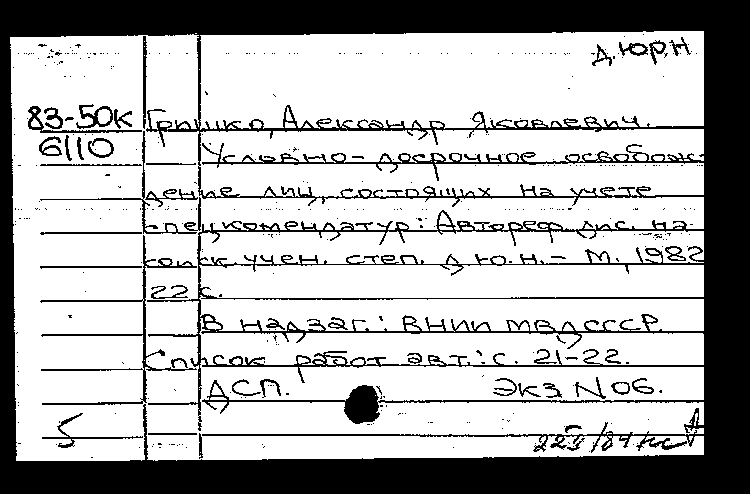 Д.ЮР.Н
83-50К Гришко, Александр Яковлевич.
6110 Условно-досрочное освобож-
дение лиц, состоящих на учете
спецкомендатур: Автореф. дис. на
соиск. учен. степ. д.ю.н. - М., 1982
22 с.
В надзаг.: ВНИИ МВД СССР.
Список работ авт.: с. 21-22.
ДСП. ЭКЗ N 06.
5